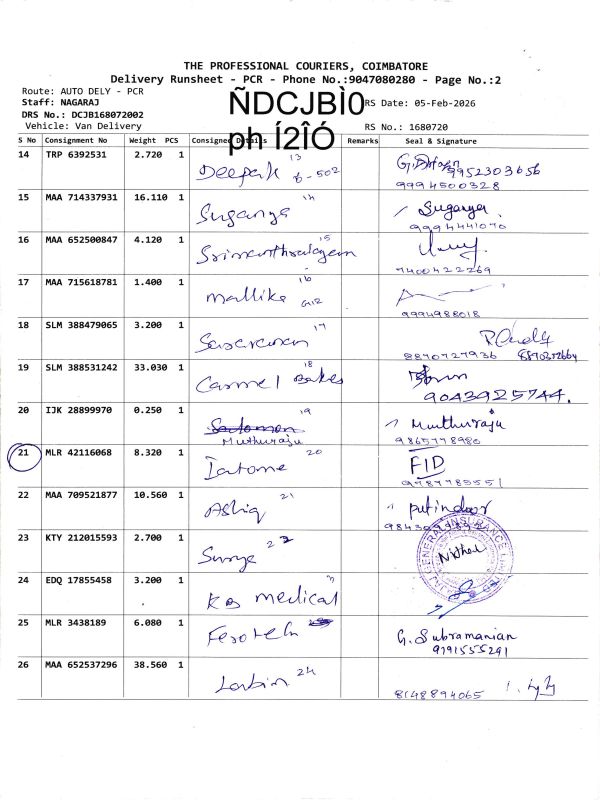 THE PROFESSIONAL COURIERS, COIMBATORE
Delivery Runsheet - PCR - Phone No.:9047080280 - Page No.:2
Route: AUTO DELY - PCR
Staff: NAGARAJ
ÑDCJBÌ0
RS Date: 05-Feb-2026
DRS No.: DCJB168072002
Vehicle: Van Delivery
ph Í2ÎÓ
RS No.: 1680720
S No Consignment No Weight PCS Consignee Details Remarks Seal & Signature
14 TRP 6392531 2.720 1 Deepak 13 B-502
9994500328
15 MAA 714337931 16.110 1 Suganya 14 Suganya
9994441070
16 MAA 652500847 4.120 1 15
7400422269
17 MAA 715618781 1.400 1 mallike 16 G12
9994988018
18 SLM 388479065 3.200 1 17
8870727936
19 SLM 388531242 33.030 1 Carmel Bakes 18
9043925744.
20 IJK 28899970 0.250 1 19 Muthuraju
Muthuraju 9865778980
21 MLR 42116068 8.320 1 20 FID
22 MAA 709521877 10.560 1 Ashiq 21
23 KTY 212015593 2.700 1 Surya 22
GENERAL INSURANCE
24 EDQ 17855458 3.200 1 KB medical
25 MLR 3438189 6.080 1 G. Subramanian
9191555291
26 MAA 652537296 38.560 1 24
8148894065